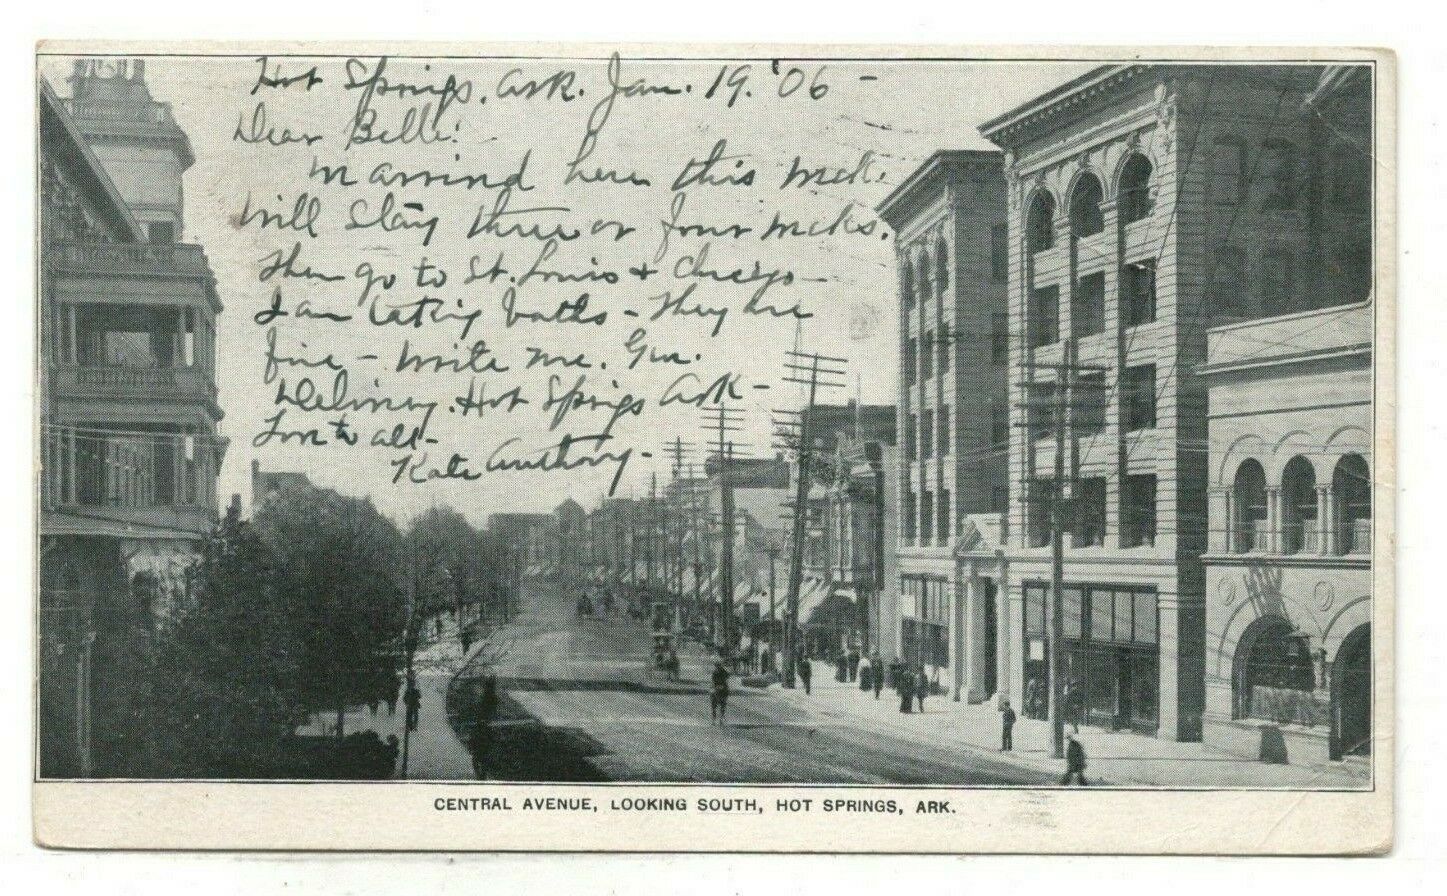 Hot Springs, Ark. Jan. 19. '06 -
Dear Belle:
Arrived here this week.
Will stay three or four weeks.
Then go to St. Louis + Chicago -
I am taking baths - They are
fine - Write me. Gen.
Delivery. Hot Springs Ark -
Love to all -
Kate Anthony -
CENTRAL AVENUE, LOOKING SOUTH, HOT SPRINGS, ARK.